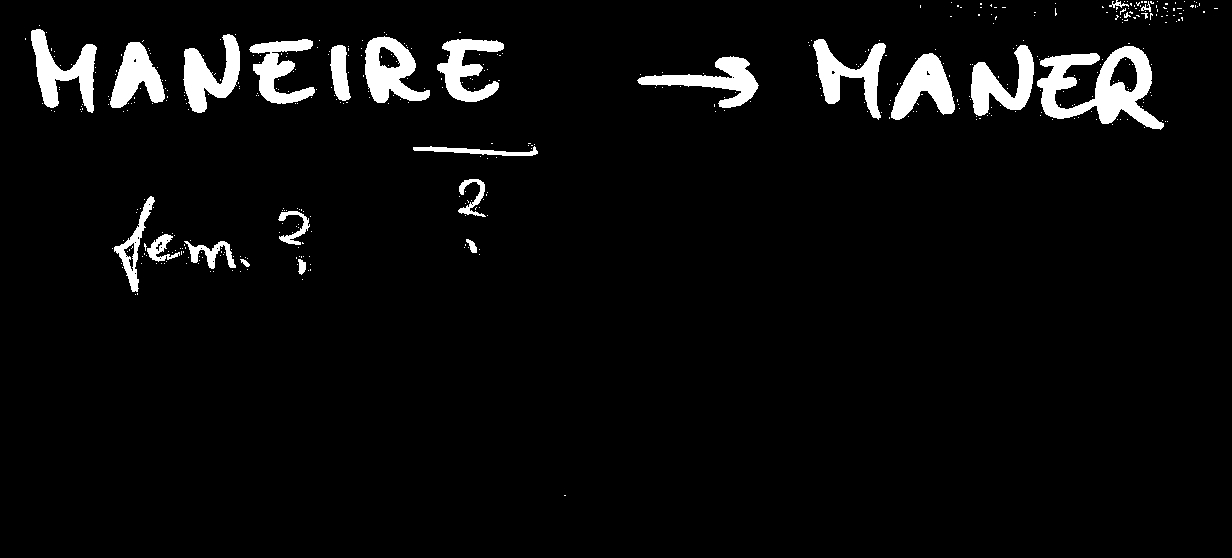 MANEIRE → MANER
?
fem. ?